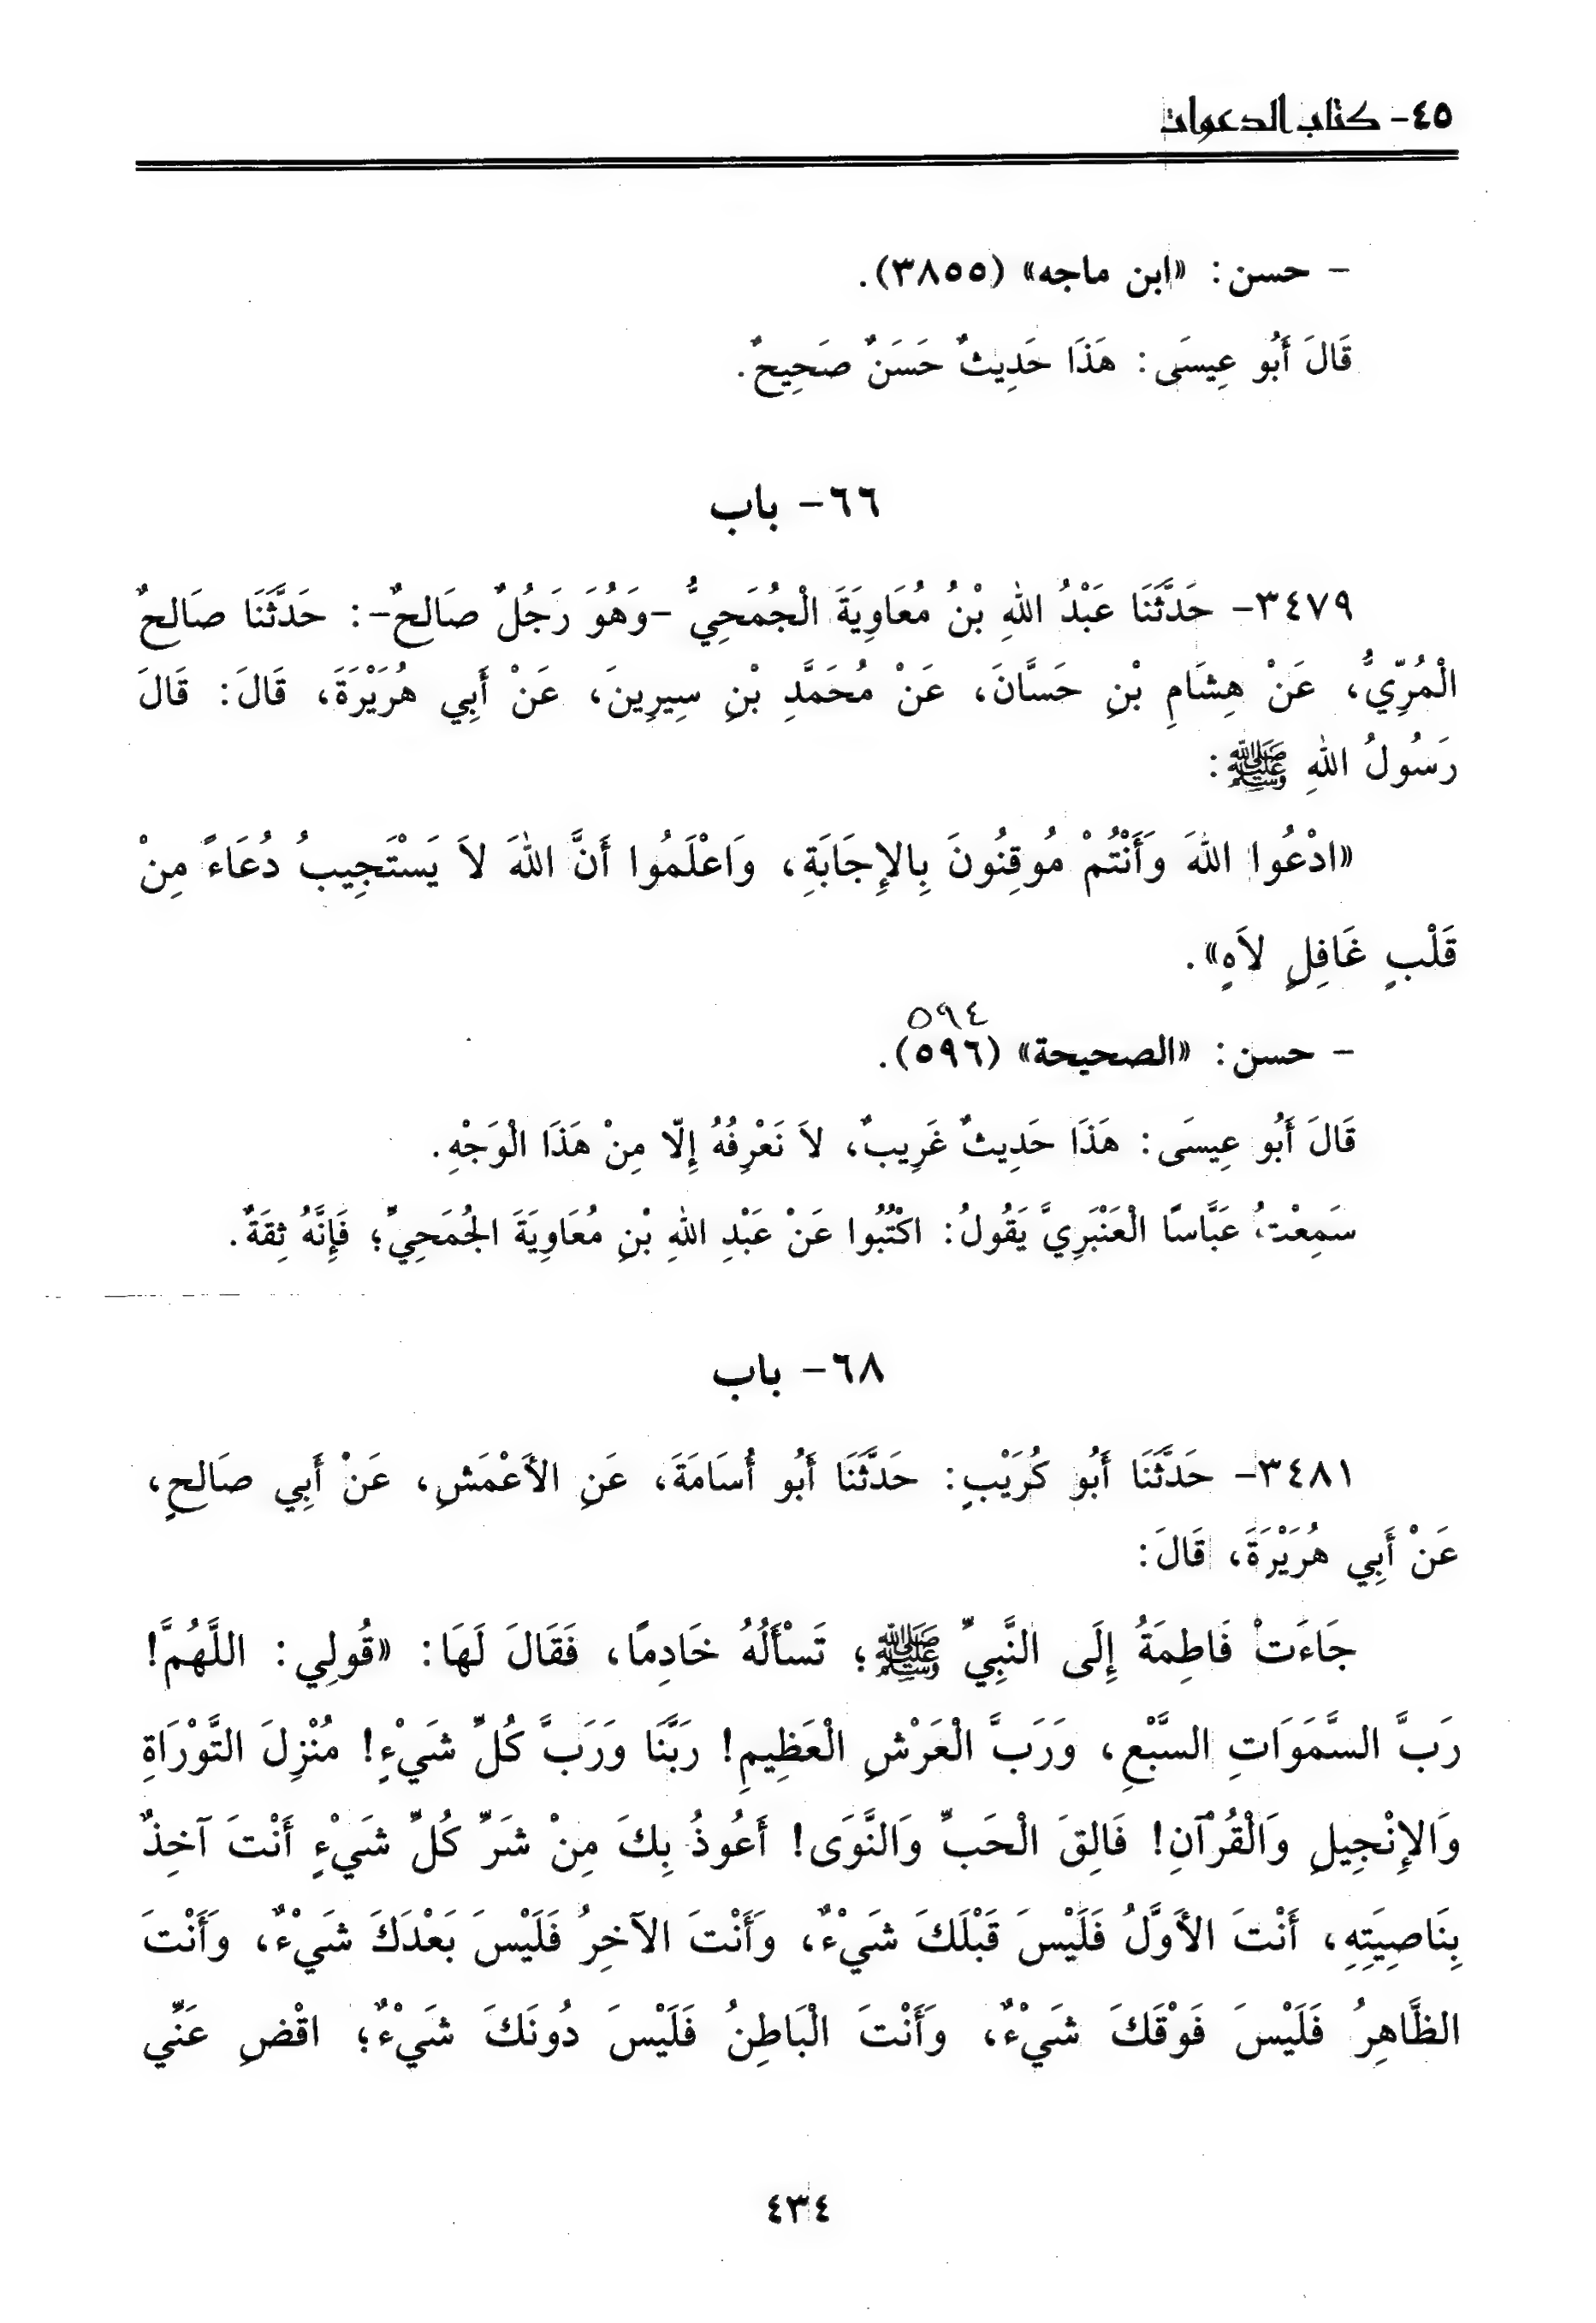 ٤٥- كتاب الدعوات
- حسن: «ابن ماجه» (٣٨٥٥).
قَالَ أَبُو عِيسَى: هَذَا حَدِيثٌ حَسَنٌ صَحِيحٌ.
٦٦- باب
٣٤٧٩- حَدَّثَنَا عَبْدُ اللهِ بْنُ مُعَاوِيَةَ الْجُمَحِيُّ -وَهُوَ رَجُلٌ صَالحٌ-: حَدَّثَنَا صَالحٌ
الْمُرِّيُّ، عَنْ هِشَامِ بْنِ حَسَّانَ، عَنْ مُحَمَّدِ بْنِ سِيرِينَ، عَنْ أَبِي هُرَيْرَةَ، قَالَ: قَالَ
رَسُولُ اللهِ ﷺ:
«ادْعُوا اللهَ وَأَنْتُمْ مُوقِنُونَ بِالإِجَابَةِ، وَاعْلَمُوا أَنَّ اللهَ لاَ يَسْتَجِيبُ دُعَاءً مِنْ
قَلْبٍ غَافِلٍ لاَهٍ».
٥٩٤
- حسن: «الصحيحة» (٥٩٦).
قَالَ أَبُو عِيسَى: هَذَا حَدِيثٌ غَرِيبٌ، لاَ نَعْرِفُهُ إِلّا مِنْ هَذَا الْوَجْهِ.
سَمِعْتُ عَبَّاسًا الْعَنْبَرِيَّ يَقُولُ: اكْتُبُوا عَنْ عَبْدِ اللهِ بْنِ مُعَاوِيَةَ الجُمَحِيِّ؛ فَإِنَّهُ ثِقَةٌ.
٦٨- باب
٣٤٨١- حَدَّثَنَا أَبُو كُرَيْبٍ: حَدَّثَنَا أَبُو أُسَامَةَ، عَنِ الأَعْمَشِ، عَنْ أَبِي صَالحٍ،
عَنْ أَبِي هُرَيْرَةَ، قَالَ:
جَاءَتْ فَاطِمَةُ إِلَى النَّبِيِّ ﷺ؛ تَسْأَلُهُ خَادِمًا، فَقَالَ لَهَا: «قُولِي: اللَّهُمَّ!
رَبَّ السَّمَوَاتِ السَّبْعِ، وَرَبَّ الْعَرْشِ الْعَظِيمِ! رَبَّنَا وَرَبَّ كُلِّ شَيْءٍ! مُنْزِلَ التَّوْرَاةِ
وَالإِنْجِيلِ وَالْقُرْآنِ! فَالِقَ الْحَبِّ وَالنَّوَى! أَعُوذُ بِكَ مِنْ شَرِّ كُلِّ شَيْءٍ أَنْتَ آخِذٌ
بِنَاصِيَتِهِ، أَنْتَ الأَوَّلُ فَلَيْسَ قَبْلَكَ شَيْءٌ، وَأَنْتَ الآخِرُ فَلَيْسَ بَعْدَكَ شَيْءٌ، وَأَنْتَ
الظَّاهِرُ فَلَيْسَ فَوْقَكَ شَيْءٌ، وَأَنْتَ الْبَاطِنُ فَلَيْسَ دُونَكَ شَيْءٌ؛ اقْضِ عَنِّي
٤٣٤